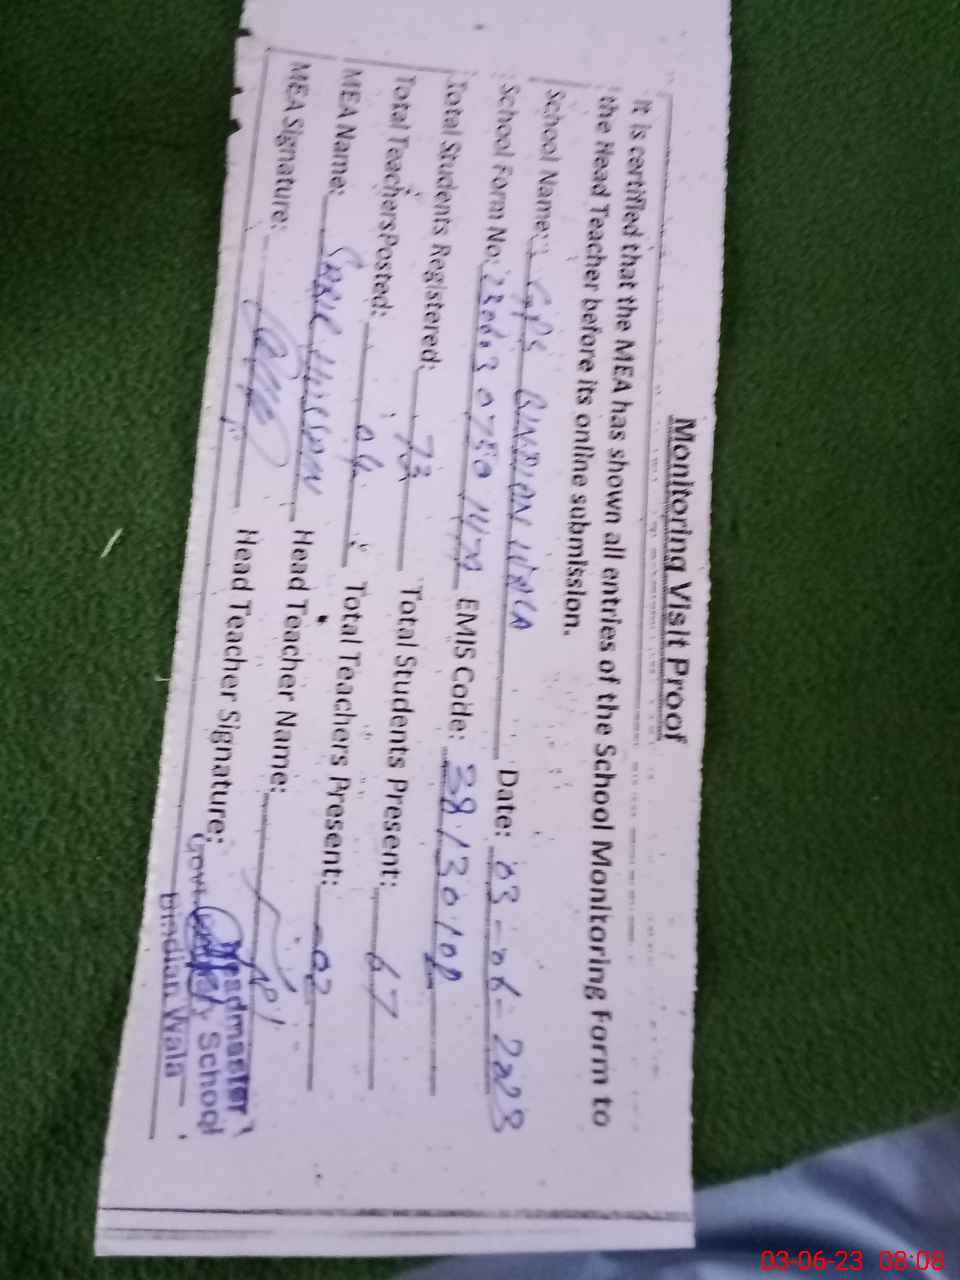 Monitoring Visit Proof
It is certified that the MEA has shown all entries of the School Monitoring Form to
the Head Teacher before its online submission.
School Name: GPS BINDIAN WALA Date: 03-06-2023
School Form No: EMIS Code: 38130108
Total Students Registered: 73 Total Students Present: 67
Total Teachers Posted: 04 Total Teachers Present: 02
MEA Name: Head Teacher Name:
MEA Signature: Head Teacher Signature:
Headmaster
Govt. School
Bindian Wala
03-06-23 08:08